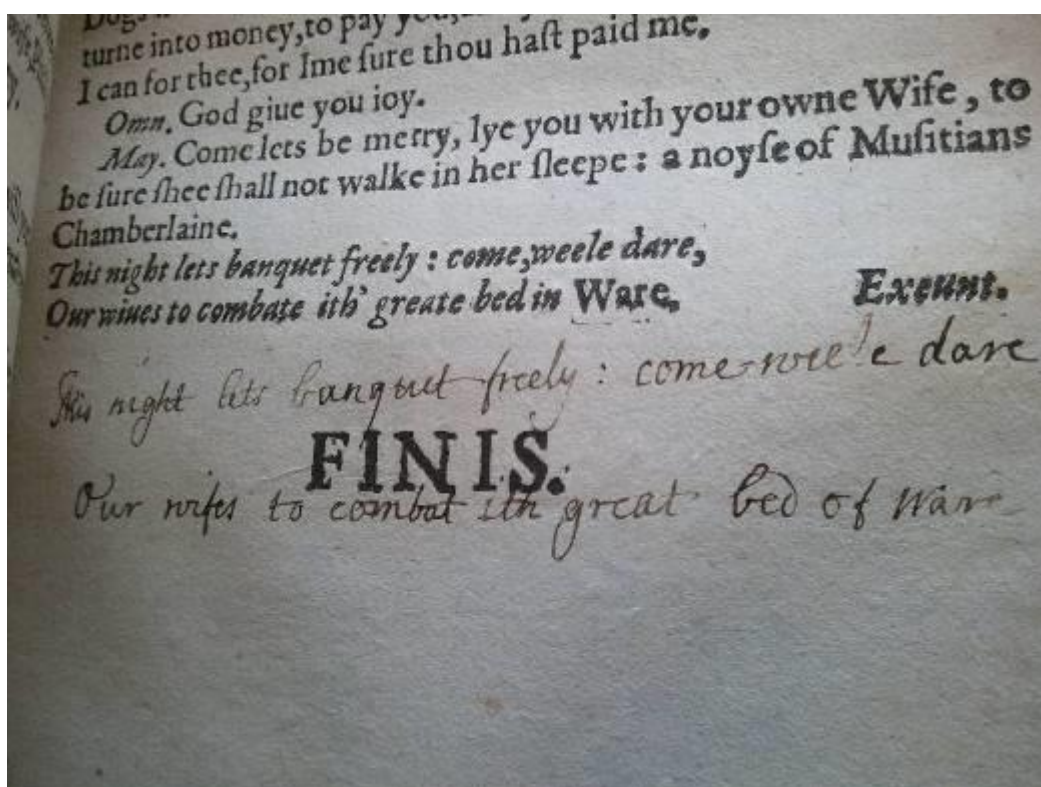 turne into money, to pay you,
I can for thee, for Ime ſure thou haſt paid me.
Omn. God giue you ioy.
May. Come lets be merry, lye you with your owne Wife, to
be ſure ſhee ſhall not walke in her ſleepe : a noyſe of Muſitians
Chamberlaine.
This night lets banquet freely : come, weele dare,
Our wiues to combate ith' greate bed in Ware. Exeunt.
This night lets banquet freely : come weele dare
FINIS.
Our wifes to combat ith great bed of Ware